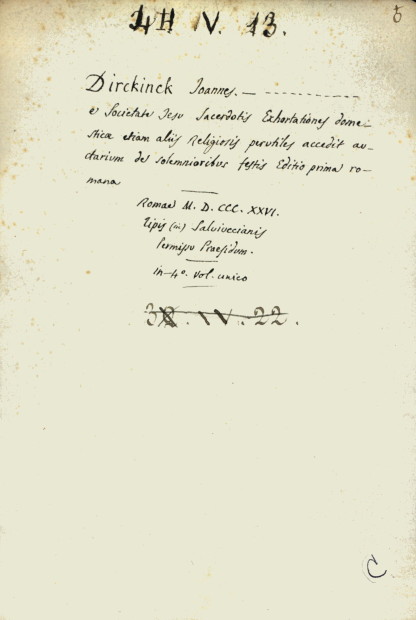 4H IV. 13.
Dirckinck Joannes. —
e Societate Jesu Sacerdotis Exhortationes dome-
sticæ etiam aliis Religiosis perutiles accedit au-
ctarium de solemnioribus festis Editio prima ro-
mana
Romae M. D. CCC. XXVI.
Tipis (in) Salviuccianis
Permissu Praesidum.
in-4º. vol. unico
IV. 22.
C